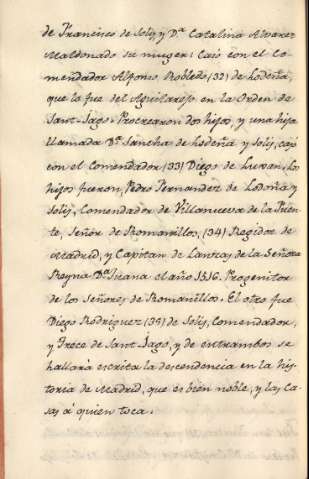 de Francisco de Solis y D.ª Catalina Alvarez
Maldonado su muger: Casó con el Co-
mendador Alfonso Robledo (32) de Lodeña,
que lo fue del Aguilarejo en la Orden de
Sant-Jago. Procrearon dos hijos, y una hija
llamada D.ª Sancha de Lodeña y Solis, casó
con el Comendador (33) Diego de Luxan. Los
hijos fueron, Pedro Fernandez de Lodoña y
Solis, Comendador de Villanueva de la Fuen-
te, Señor de Romanillos, (34) Regidor de
Madrid, y Capitan de Lanzas de la Señora
Reyna D.ª Juana el año 1516. Progenitor
de los Señores de Romanillos. El otro fue
Diego Rodriguez (35) de Solis, Comendador,
y Trece de Sant-Jago, y de entrambos se
hallará escrita la descendencia en la his-
toria de Madrid, que es bien noble, y las Ca-
sas á quien toca.